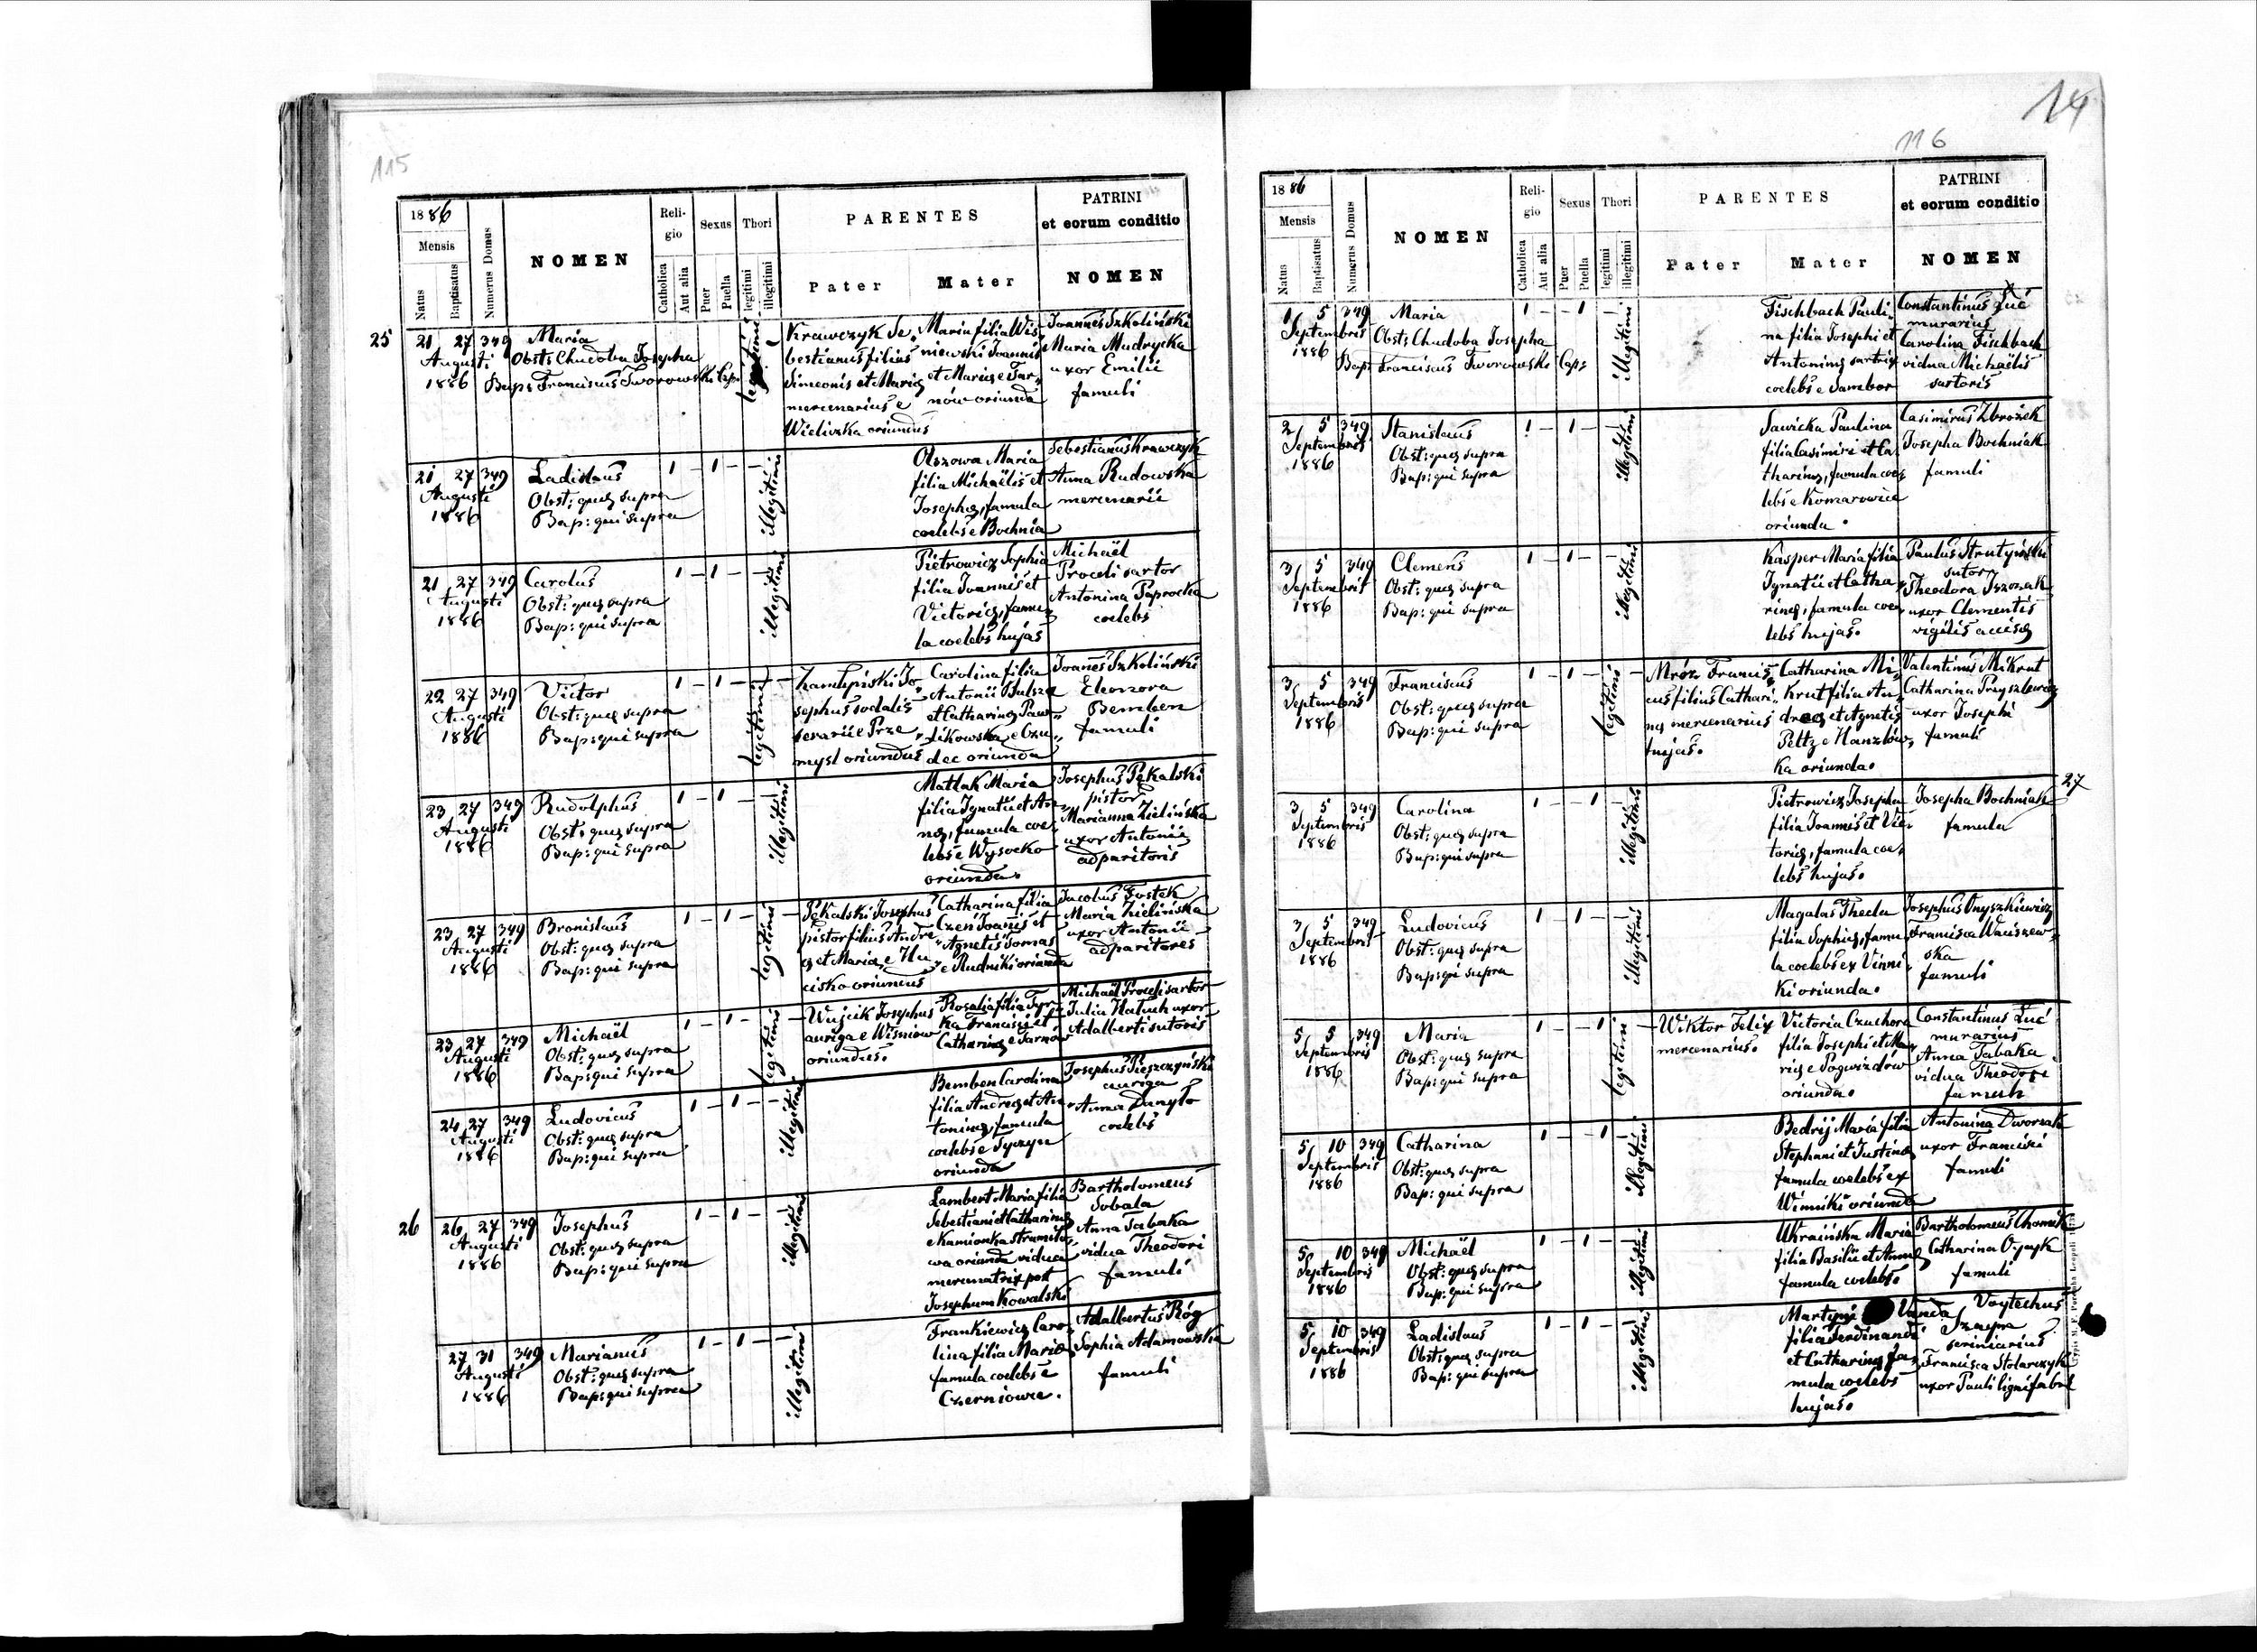 115
1886
Mensis
Natus
Baptisatus
Numerus Domus
NOMEN
Reli-
gio
Catholica
Aut alia
Sexus
Puer
Puella
Thori
legitimi
illegitimi
PARENTES
Pater
Mater
PATRINI
et eorum conditio
NOMEN
25
21 27 349
Augusti
1886
Maria
Obst: Chudoba Josepha
Bap: Franciscus Tworowski Cap:
legitimi
Krawczyk Se-
bestianus filius
Simeonis et Mariæ
mercenarius e
Wieliczka oriundus
Maria filia Wiś-
niewski Joannis
et Mariæ e Tar-
nów oriunda
Joannes Szkoliński
Maria Mudrycka
uxor Emilii
famuli
21 27 349
Augusti
1886
Ladislaus
Obst: quæ supra
Bap: qui supra
1 – 1 – –
illegitimi
Olszowa Maria
filia Michaëlis et
Josephæ, famula
coelebs e Bochnia
Sebestianus Krawczyk
Anna Rudowska
mercenarii
21 27 349
Augusti
1886
Carolus
Obst: quæ supra
Bap: qui supra
1 – 1 – –
illegitimi
Pietrowicz Sophia
filia Joannis et
Victoriæ, famu-
la coelebs hujas
Michaël
Procli sartor
Antonina Paprocka
coelebs
22 27 349
Augusti
1886
Victor
Obst: quæ supra
Bap: qui supra
1 – 1 –
legitimi
Jo-
sephus sodalis
serarii e Prze-
mysl oriundus
Carolina filia
Antonii
et Catharinæ Paw-
likowska e Czu-
dec oriunda
Joanes Szkoliński
Eleonora
Bemben
famuli
23 27 349
Augusti
1886
Rudolphus
Obst: quæ supra
Bap: qui supra
1 – 1 – –
illegitimi
Matlak Maria
filia Ignatii et An-
næ, famula coe-
lebs e Wysocko
oriunda
Josephus Pękalski
pistor
Marianna Zielińska
uxor Antonii
adparitoris
23 27 349
Augusti
1886
Bronislaus
Obst: quæ supra
Bap: qui supra
1 – 1 –
legitimi
Pękalski Josephus
pistor filius Andre-
æ et Mariæ, e Hu-
cisko oriundus
Catharina filia
Czeń Joanis et
Agnetis Tomas
e Rudniki oriunda
Jacobus Fostek
Maria Zielińska
uxor Antonii
adparitores
23 27 349
Augusti
1886
Michaël
Obst: quæ supra
Bap: qui supra
1 – 1 –
legitimi
Wujcik Josephus
auriga e Wiśniow
oriundus.
Rosalia filia Tyr-
ka Francisci et
Catharinæ e Tarnow
Michaël Procli sartor
Julia Hatuch uxor
Adalberti sutoris
24 27 349
Augusti
1886
Ludovicus
Obst: quæ supra
Bap: qui supra
1 – 1 – –
illegitimi
Bemben Carolina
filia Andreæ et An-
toninæ, famula
coelebs e Tyczyn
oriunda
Josephus Pieszczyński
auriga
Anna Danylo
coelebs
26
26 27 349
Augusti
1886
Josephus
Obst: quæ supra
Bap: qui supra
1 – 1 – –
illegitimi
Lambert Maria filia
Sebestiani et Catharinæ
e Kamionka Strumiło-
wa oriunda vidua
mercenatrix post
Josephum Kowalski
Bartholomeus
Sobala
Anna Tabaka
vidua Theodori
famuli
27 31 349
Augusti
1886
Marianus
Obst: quæ supra
Bap: qui supra
1 – 1 – –
illegitimi
Frankiewicz Caro-
lina filia Mariæ
famula coelebs e
Czerniowce.
Adalbertus Róg
Sophia Adamowska
famuli
14
116
1886
Mensis
Natus
Baptisatus
Numerus Domus
NOMEN
Reli-
gio
Catholica
Aut alia
Sexus
Puer
Puella
Thori
legitimi
illegitimi
PARENTES
Pater
Mater
PATRINI
et eorum conditio
NOMEN
1 5 349
Septembris
1886
Maria
Obst: Chudoba Josepha
Bap: Franciscus Tworowski Cap:
1 – – 1 –
illegitimi
Fischbach Pauli-
na filia Josephi et
Antoninæ sartrix
coelebs e Sambor
Constantinus Łuć
murarius
Carolina Fischbach
vidua Michaëlis
sartoris
2 5 349
Septembris
1886
Stanislaus
Obst: quæ supra
Bap: qui supra
1 – 1 – –
illegitimi
Sawicka Paulina
filia Casimiri et Ca-
tharinæ, famula coe-
lebs e Komarowice
oriunda.
Casimirus Zbrożek
Josepha Bochniak
famuli
3 5 349
Septembris
1886
Clemens
Obst: quæ supra
Bap: qui supra
1 – 1 – –
illegitimi
Kasper Maria filia
Ignatii et Catha-
rinæ, famula coe-
lebs hujas.
Paulus Strutyński
sutor
Theodora
uxor Clementis
vigilis accisæ
3 5 349
Septembris
1886
Franciscus
Obst: quæ supra
Bap: qui supra
1 – 1 –
legitimi
Mróz Francis-
cus filius Cathari-
næ mercenarius
hujas.
Catharina Mi-
krut filia An-
dreæ et Agnetis
Peltz e Hanzlów-
ka oriunda.
Valentinus Mikrut
Catharina Przyszlewicz
uxor Josephi
famuli
27
3 5 349
Septembris
1886
Carolina
Obst: quæ supra
Bap: qui supra
1 – – 1 –
illegitimi
Pietrowicz Josepha
filia Joannis et Vic-
toriæ, famula coe-
lebs hujas.
Josepha Bochniak
famula
3 5 349
Septembris
1886
Ludovicus
Obst: quæ supra
Bap: qui supra
1 – 1 – –
illegitimi
Magalas Thecla
filia Sophiæ, famu-
la coelebs ex Vinni-
ki oriunda.
Josephus Onyszkiewicz
Francisca Waciszew-
ska
famuli
5 5 349
Septembris
1886
Maria
Obst: quæ supra
Bap: qui supra
1 – – 1
legitimi
Wiktor Felix
mercenarius.
Victoria Czuchora
filia Josephi et Ma-
riæ e Pogwizdów
oriunda.
Constantinus Łuć
murarius
Anna Tabaka
vidua Theodori
famuli
5 10 349
Septembris
1886
Catharina
Obst: quæ supra
Bap: qui supra
1 – – 1 –
illegitimi
Bedrij Maria filia
Stephani et Justinæ
famula coelebs ex
Winniki oriunda
Antonina Dworzak
uxor Francisci
famuli
5 10 349
Septembris
1886
Michaël
Obst: quæ supra
Bap: qui supra
1 – 1 – –
illegitimi
Ukraińska Maria
filia Basilii et Annæ
famula coelebs.
Bartholomeus Chomik
Catharina
famuli
5 10 349
Septembris
1886
Ladislaus
Obst: quæ supra
Bap: qui supra
1 – 1 – –
illegitimi
Vanda
filia Ferdinandi
et Catharinæ fa-
mula coelebs
hujas.
Voytechus
Szayna
scriniarius
Francisca Stolarczyk
uxor Pauli lignifabri